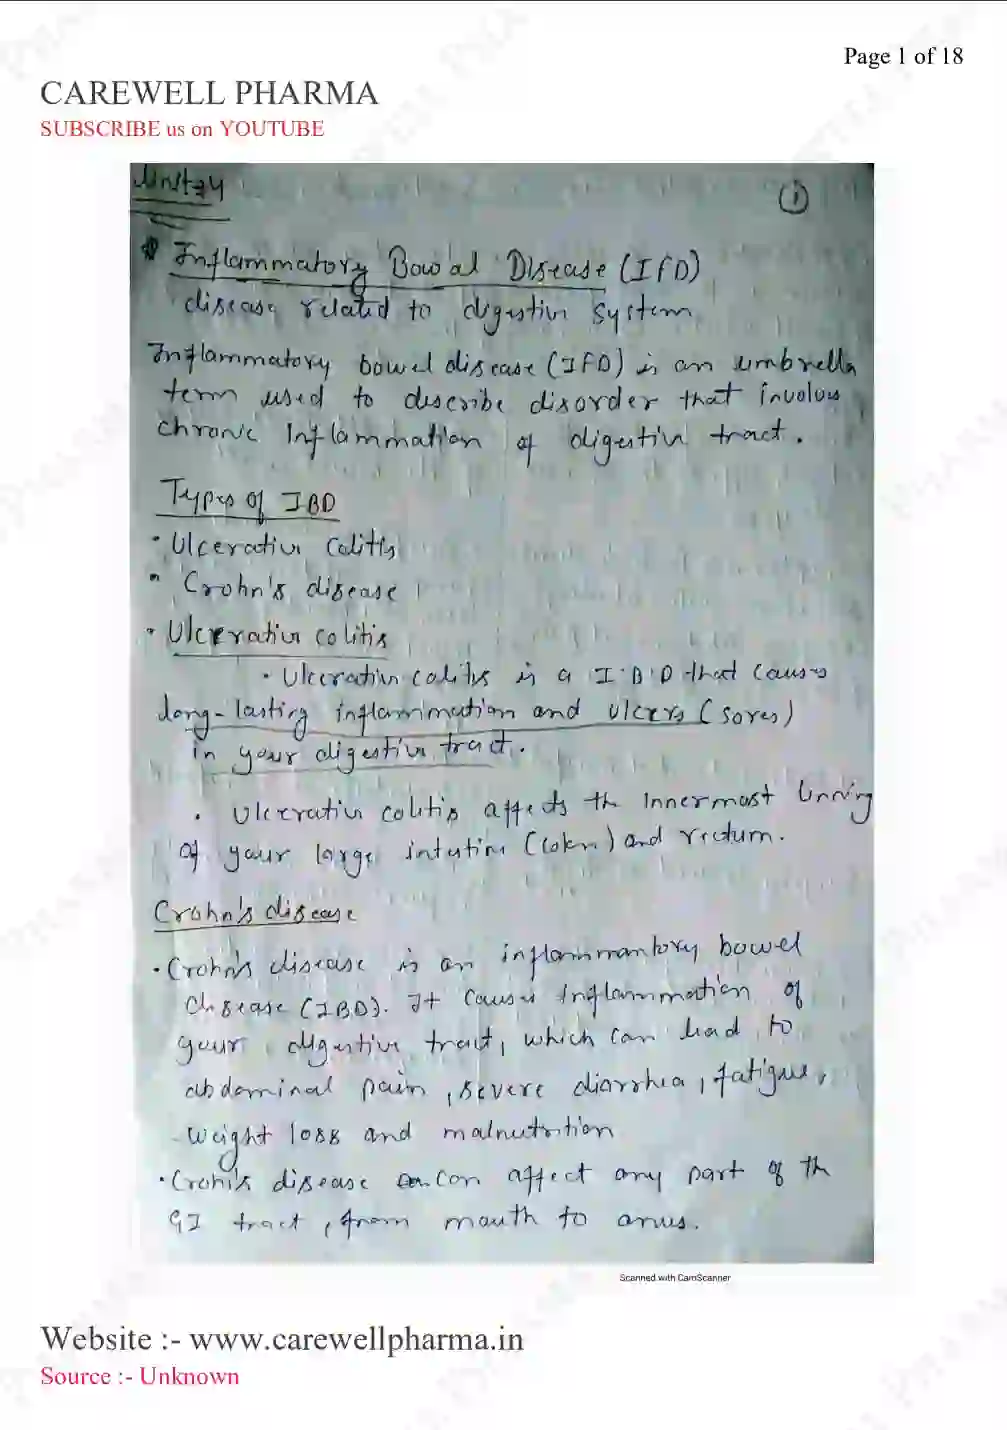 Page 1 of 18
CAREWELL PHARMA
SUBSCRIBE us on YOUTUBE
Unit-4
1
* Inflammatory Bowal Disease (IFD)
disease related to digestive system
Inflammatory bowel disease (IFD) is an umbrella
term used to describe disorder that involves
chronic Inflammation of digestive tract.
Types of IBD
• Ulcerative Colitis
• Crohn's disease
• Ulcerative colitis
• Ulcerative colitis is a I.B.D that causes
long-lasting inflammation and Ulcers (sores)
in your digestive tract.
• Ulcerative colitis affects the Innermost Linning
of your large intestine (colon) and rectum.
Crohn's disease
• Crohn's disease is an inflammantory bowel
disease (IBD). It causes Inflammation of
your digestive tract, which can lead to
abdominal pain, severe diarrhea, fatigue,
weight loss and malnutrition
• Crohn's disease can affect any part of the
GI tract, from mouth to anus.
Scanned with CamScanner
Website :- www.carewellpharma.in
Source :- Unknown